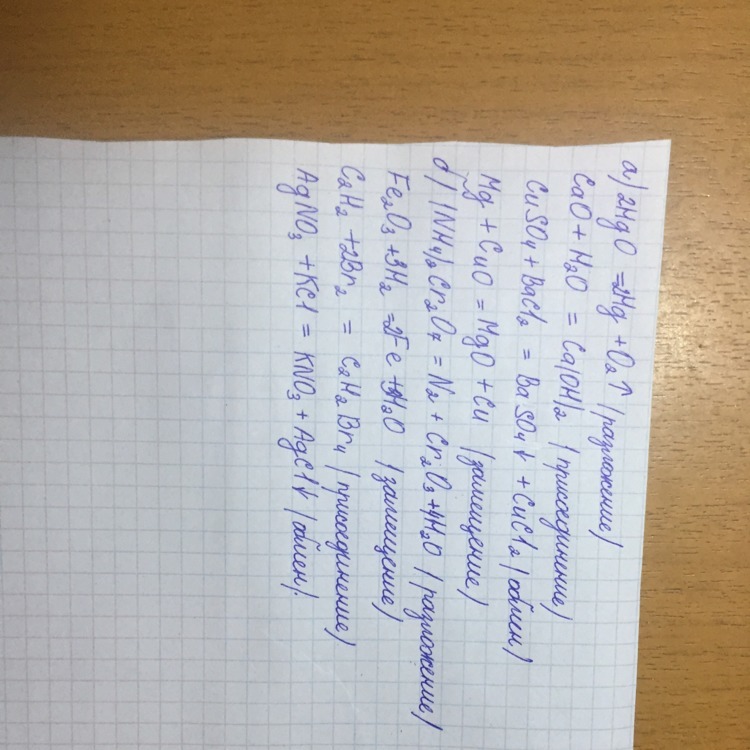 а) 2HgO = 2Hg + O₂↑ (разложение)
CaO + H₂O = Ca(OH)₂ (присоединение)
CuSO₄ + BaCl₂ = BaSO₄↓ + CuCl₂ (обмен)
Mg + CuO = MgO + Cu (замещение)
д) (NH₄)₂Cr₂O₇ = N₂ + Cr₂O₃ + 4H₂O (разложение)
Fe₂O₃ + 3H₂ = 2Fe + 3H₂O (замещение)
C₂H₂ + 2Br₂ = C₂H₂Br₄ (присоединение)
AgNO₃ + KCl = KNO₃ + AgCl↓ (обмен).